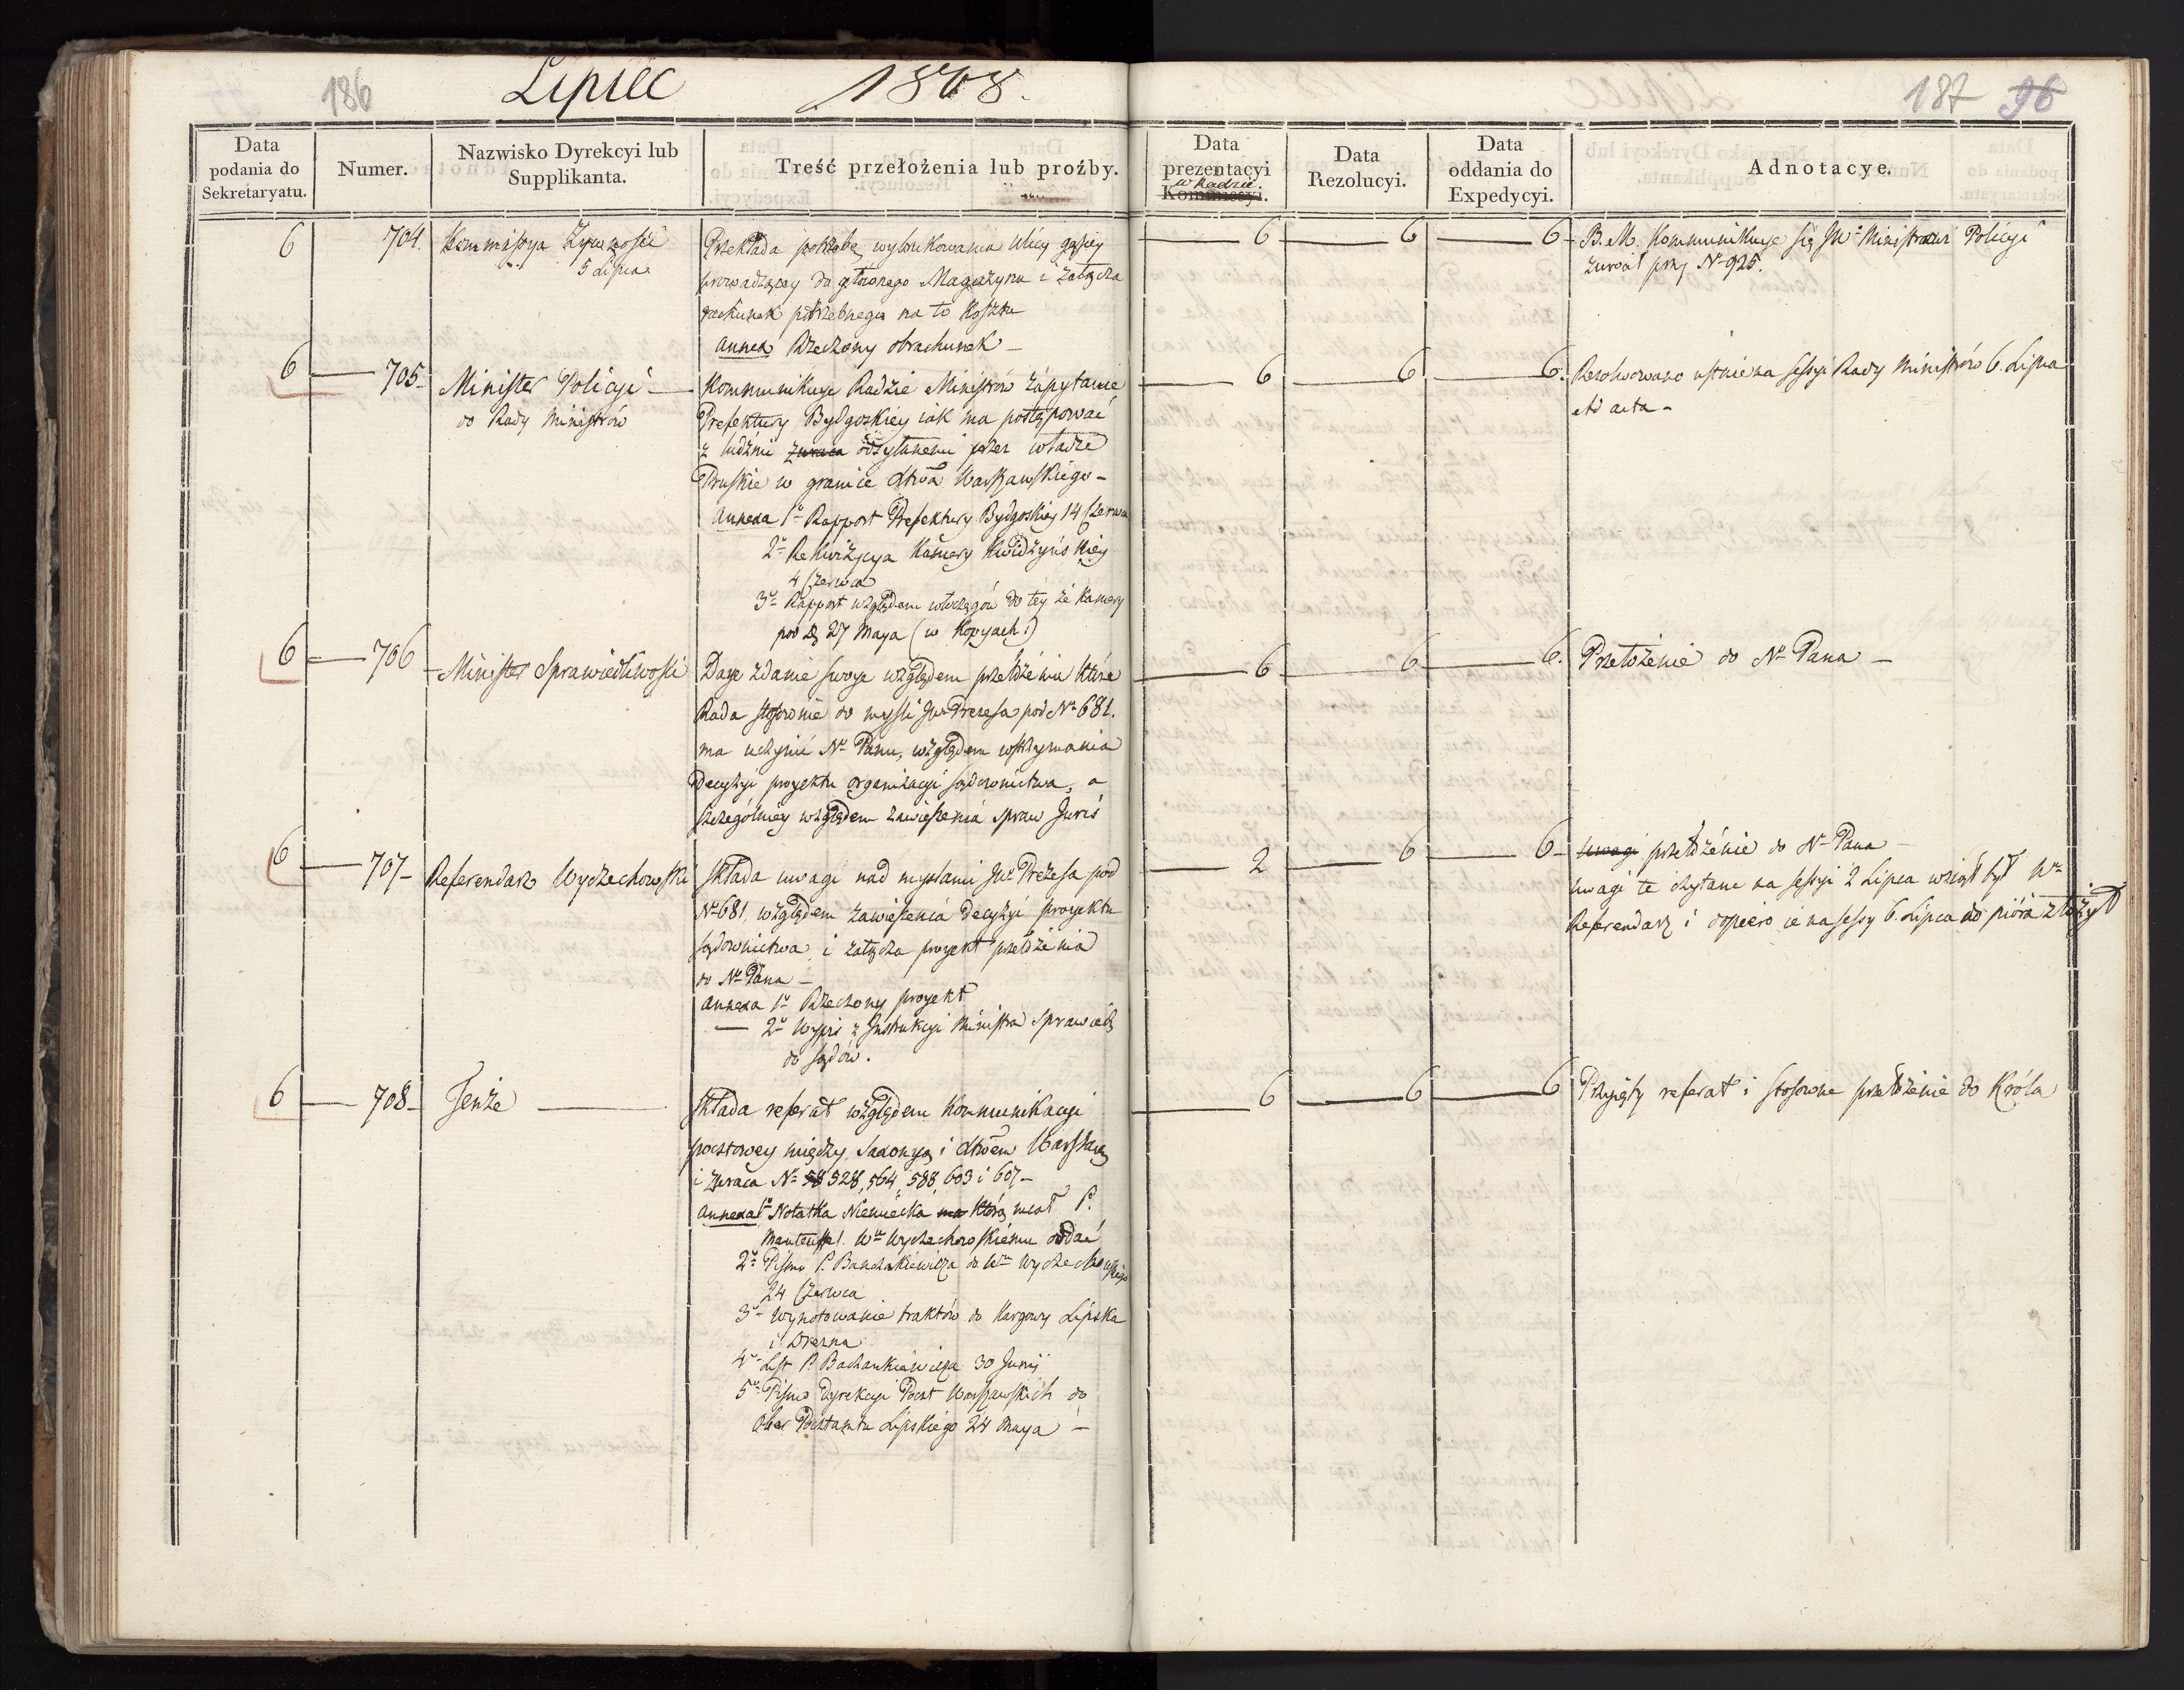 186
Lipiec 1808.
187 96
Data podania do Sekretaryatu.
Numer.
Nazwisko Dyrekcyi lub Supplikanta.
Treść przełożenia lub proźby.
Data prezentacyi w Radzie Kommissyi.
Data Rezolucyi.
Data oddania do Expedycyi.
Adnotacye.
6 704. Kommissya Żywności
5 Lipca
Przekłada potrzebę wybrukowania Ulicy
prowadzącey do głównego Magazynu i załącza
rachunek potrzebnego na to Kosztu
Annex Rzeczony obrachunek —
6 6 6 B. M. Kommunikuje się JW Ministrowi Policyi
zwrot przy N 925.
6 705 Minister Policyi
do Rady Ministrów
Kommunikuje Radzie Ministrów zapytanie
Prefektury Bydgoskiey iak ma postępować
z ludźmi odsyłanemi przez władze
Pruskie w granice Xtwa Warszawskiego —
Annexa 1o Rapport Prefektury Bydgoskiey 14 Czerwca
2o Rekwizycya Kamery Kwidzyńskiey
4 Czerwca
3o Rapport względem włóczęgów do tey że Kamery
pod D 27 Maya (w Kopyach:)
6 6 6. Rezolwowano ustnie na sessyi Rady Ministrów 6. Lipca
Ad acta —
6 706 Minister Sprawiedliwości
Daje zdanie swoje względem przełożenia które
Rada stosownie do mysli JW Prezesa pod N 681.
ma uczynić N Panu, względem wstrzymania
Decyzyi proyektu organizacyi sądownictwa, a
szczególniey względem zawieszenia spraw Juris
6 6 6. Przełożenie do N Pana —
6 707 Referendarz Wyczechowski
Składa uwagi nad myslami JW Prezesa pod
N 681. względem zawieszenia Decyzyi proyektu
sądownictwa, i załącza proyekt przełożenia
do N Pana —
Annexa 1o Rzeczony proyekt
— 2o Wypis z Instrukcyi Ministra Sprawiedl
do sądów.
2 6 6 Uwagi przełożenie do N Pana —
Uwagi te czytane na sessyi 2 Lipca wziął był W
Referendarz i dopiero ie na sessyi 6. Lipca do pióra złożył
6 708 Tenże
Składa referat względem Kommunikacyi
pocztowey między Saxonyą i Xtwem Warszaw
i zwraca N 58 528, 564, 588, 603 i 607 —
Annexa 1o Notatka Niemiecka którą miał P.
Manteuffel W Wyczechowskiemu oddać
2o Pismo P. do W Wyczechowskiego
24 Czerwca
3o Wynotowanie traktów do Kargowy Lipska
i Drezna
4o List P. 30 Junij
5o Pismo Dyrekcyi Poczt Warszawskich do
Ober Pocztamtu Lipskiego 24 Maya —
6 6 6 Przyięty referat i stosowne przełożenie do Króla